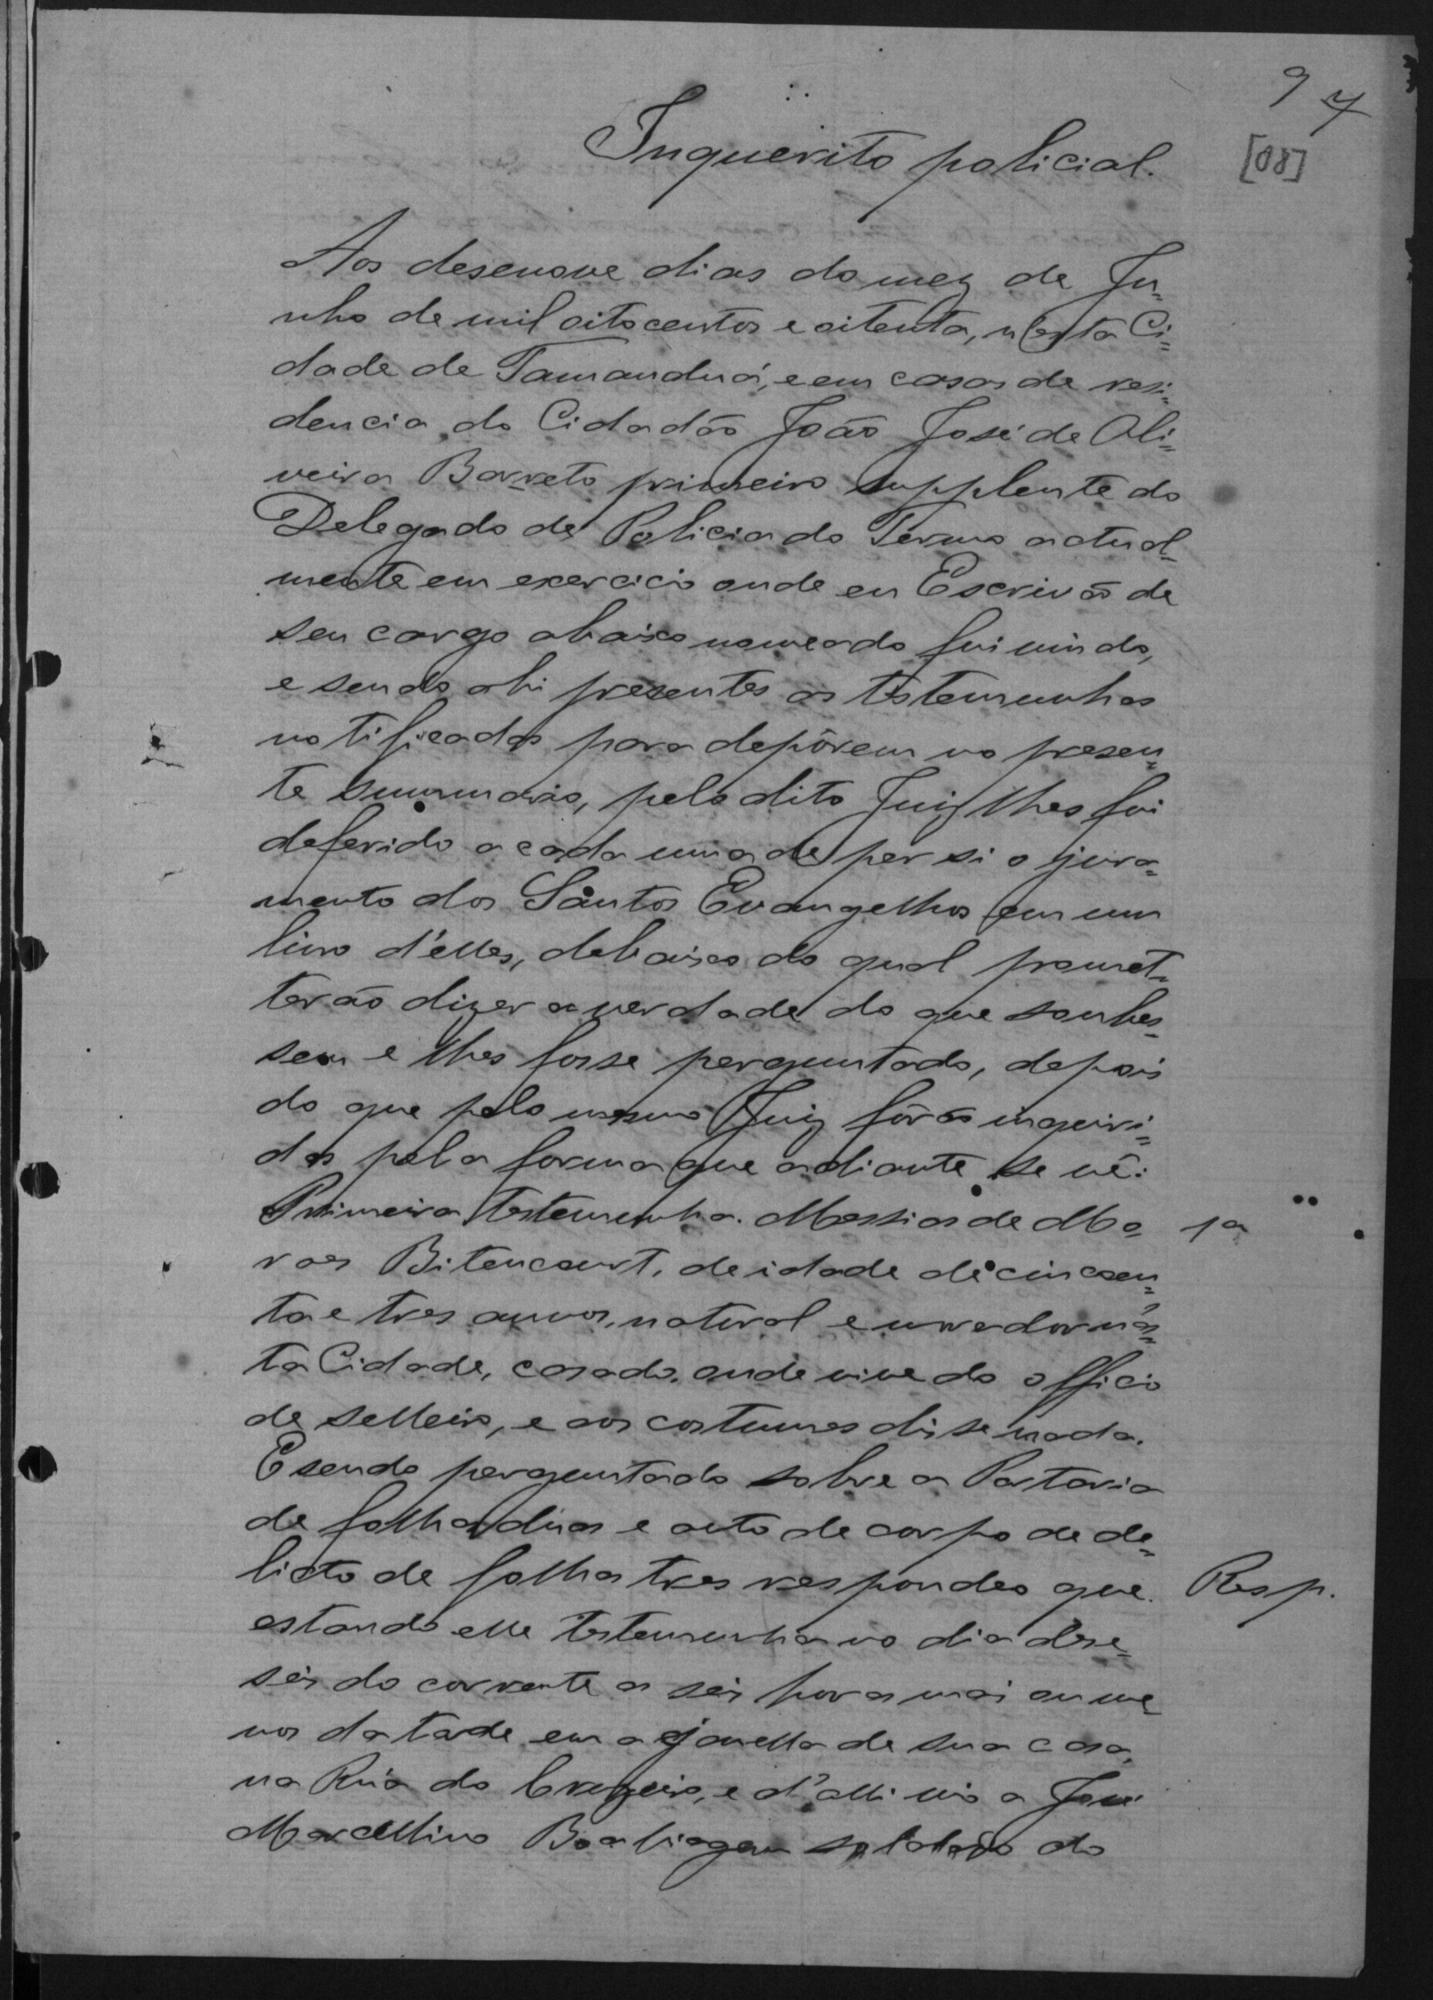 9 7
[08]
Inquerito policial.
Aos desenove dias do mez de Ju=
nho de mil oitocentos e oitenta, n'esta Ci=
dade de Tamanduá, e em casas de resi=
dencia do Cidadão João José de Oli=
veira Barreto primeiro supplente do
Delegado de Policia do Termo actual=
mente em exercicio onde eu Escrivão de
seu cargo abaixo nomeado fui vindo,
e sendo ahi presentes as testemunhas
notificadas para depôrem no presen=
te summario, pelo dito Juiz lhes foi
deferido a cada uma de per si o jura=
mento dos Santos Evangelhos em um
livro d'elles, debaixo do qual promet=
terão dizer a verdade do que soubes=
sem e lhes fosse perguntado, depois
do que pelo mesmo Juiz fôrão inqueri=
das pela forma que adiante se vê:
Primeira testemunha. Messias de Mo=
raes Bitencourt, de idade de cincoen=
ta e tres annos, natural e morador n'es=
ta Cidade, casado, onde vive do officio
de selleiro, e aos costumes disse nada.
E sendo perguntado sobre a Portaria
de folha duas e auto de corpo de de=
licto de folha tres respondeo que
estando elle testemunha no dia dese=
seis do corrente as seis horas mai ou me
nos da tarde em a janella de sua casa,
na Rua do Cruzeiro, e d'alli vio a José
Marcellino soldado do
1ª
Resp.